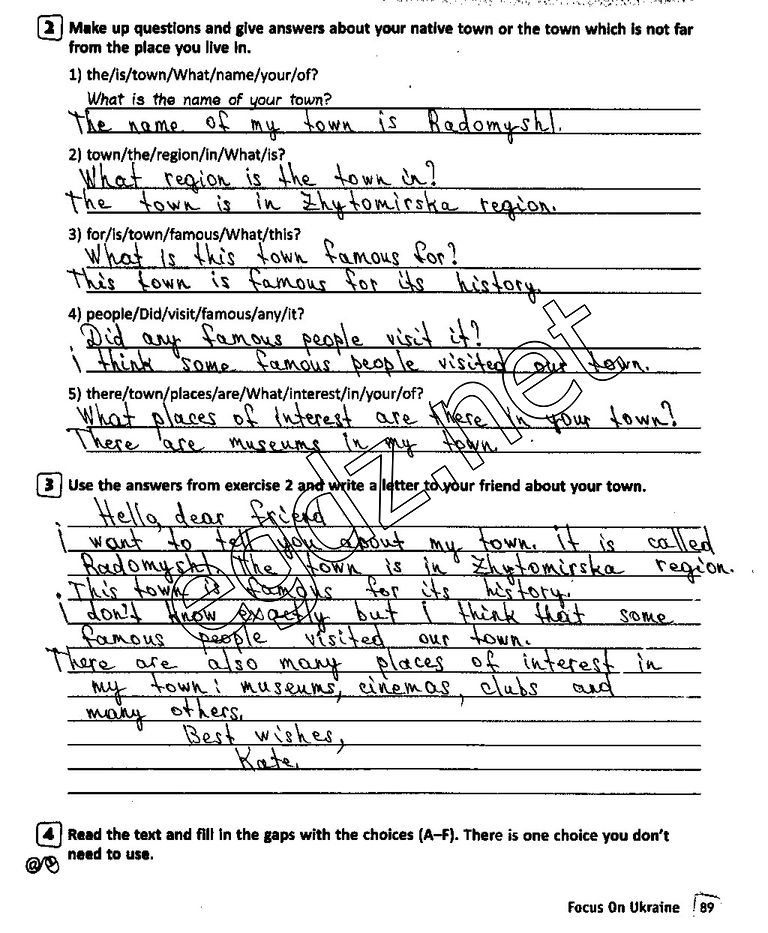 2 Make up questions and give answers about your native town or the town which is not far
from the place you live in.
1) the/is/town/What/name/your/of?
What is the name of your town?
The name of my town is Radomyshl.
2) town/the/region/in/What/is?
What region is the town in?
The town is in Zhytomirska region.
3) for/is/town/famous/What/this?
What is this town famous for?
This town is famous for its history.
4) people/Did/visit/famous/any/it?
Did any famous people visit it?
i think some famous people visited our town.
5) there/town/places/are/What/interest/in/your/of?
What places of interest are there in your town?
There are museums in my town.
3 Use the answers from exercise 2 and write a letter to your friend about your town.
Hello, dear friend
i want to tell you about my town. it is called
Radomyshl. The town is in Zhytomirska region.
This town is famous for its history.
i don't know exactly but i think that some
famous people visited our town.
There are also many places of interest in
my town: museums, cinemas, clubs and
many others.
Best wishes,
Kate.
4 Read the text and fill in the gaps with the choices (A–F). There is one choice you don't
need to use.
Focus On Ukraine 89
egdz.net